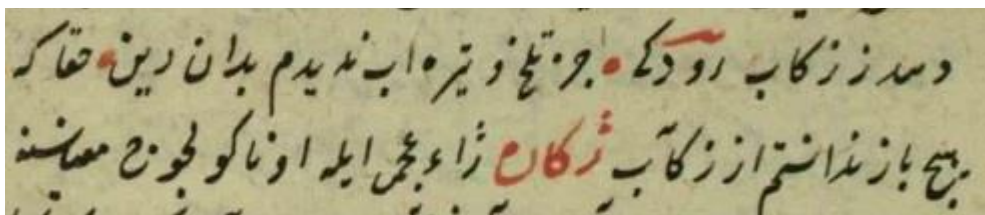 زکاب رودکی • جز تلخ و تیره اب ندیدم بدان زمین • حقا که
هیچ باز ندانستم از زکآب ژکاره ژاء عجمی ایله اوناکو لجوج معناسنه